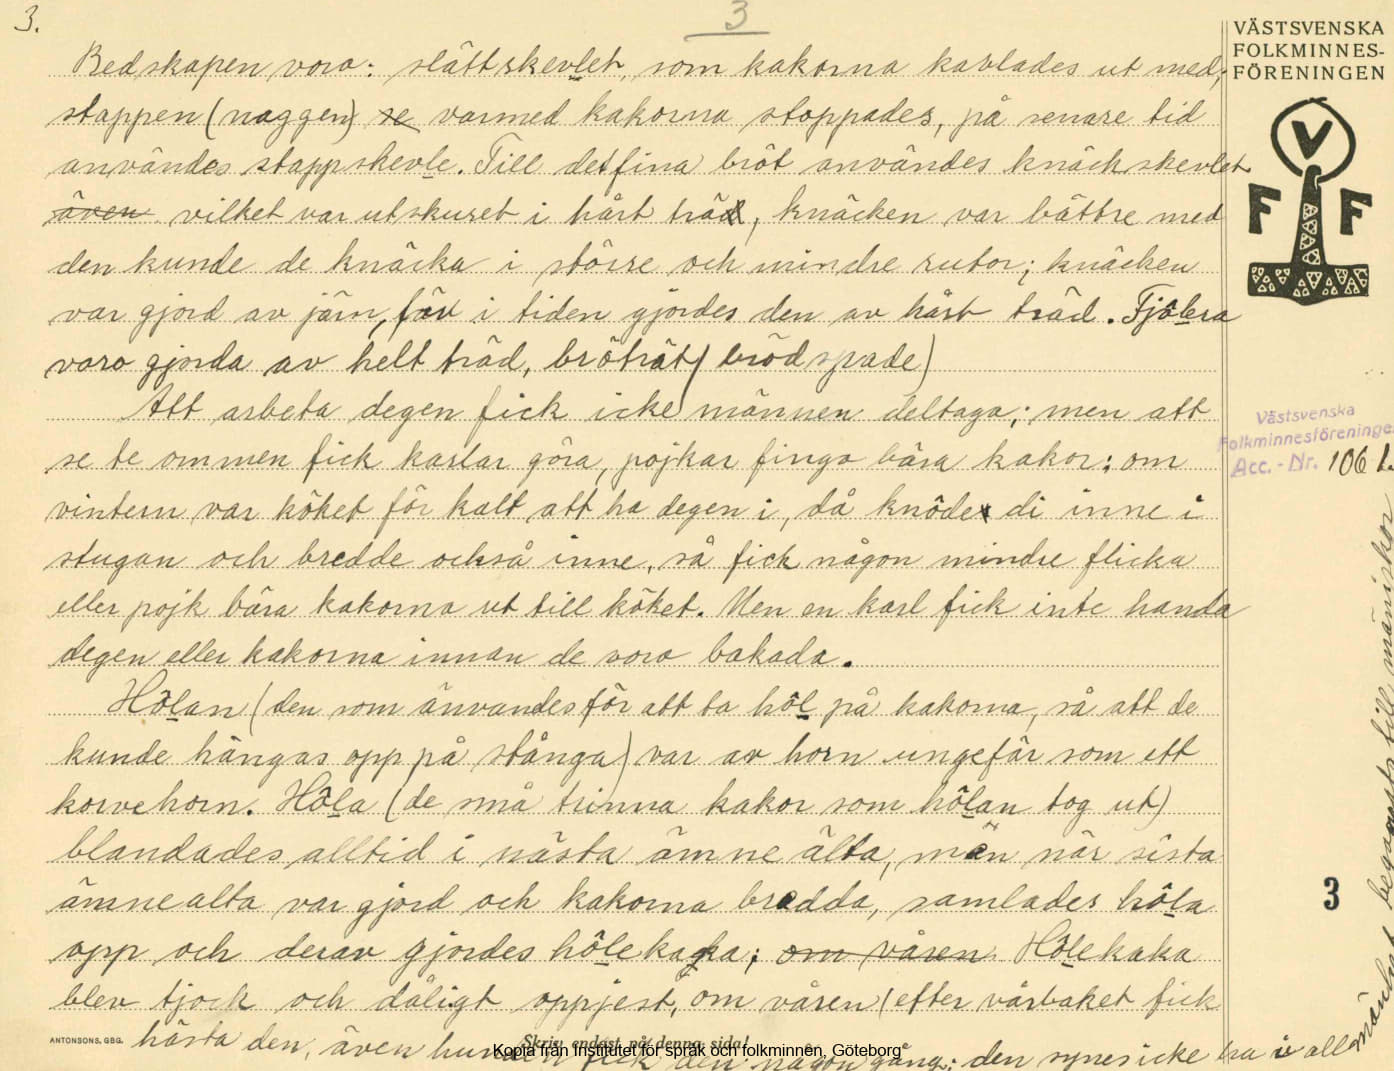 3.
3
VÄSTSVENSKA
FOLKMINNES-
FÖRENINGEN
V
F F
Bedskapen voro: slättskevlet, som kakorna kavlades ut med,
stappen (naggen) se varmed kakorna stoppades, på senare tid
användes stappskevle. Till det fina bröt användes knäckskevlet
även vilket var utskuret i hårt träd, knäcken var bättre med
den kunde de knäcka i större och mindre rutor; knäcken
var gjord av järn, förr i tiden gjordes den av hårt träd. Fjôlera
voro gjorda av helt träd, brötröt (brödspade)
Att arbeta degen fick icke männen deltaga; men att
se te ommen fick karlar göra, pojkar fingo bära kakor; om
vintern var köket för kalt att ha degen i, då knôde di inne i
stugan och bredde också inne, så fick någon mindre flicka
eller pojk bära kakorna ut till köket. Men en karl fick inte handa
degen eller kakorna innan de voro bakada.
Hôlan (den som användes för att ta hôl på kakorna, så att de
kunde hängas opp på stånga) var av horn ungefär som ett
korvehorn. Hôla (de små trinna kakor som hôlan tog ut)
blandades alltid i nästa ämne älta, män när sista
ämnealta var gjord och kakorna bredda, samlades hôla
opp och derav gjordes hôlekaka; om våren Hôlekaka
blev tjock och dåligt oppjest, om våren (efter vårbaket fick
hästa den, även hunden fick den någon gång; den synes icke ha i alla
mänhet begagnats till mäniskor
Västsvenska
Folkminnesföreningen
Acc. - Nr. 106 L.
3
ANTONSONS, GBG.
Skriv endast på denna sida!
Kopia från Institutet för språk och folkminnen, Göteborg